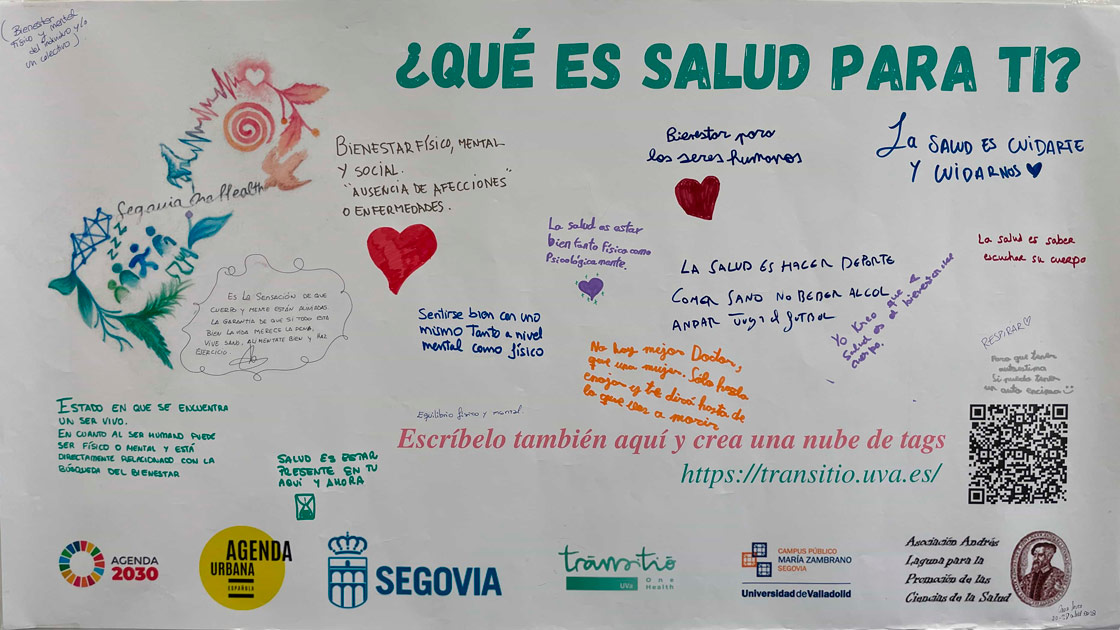 (Bienestar
físico y mental
del individuo y/o
un colectivo)
¿QUÉ ES SALUD PARA TI?
Segovia One Health
BIENESTAR FÍSICO, MENTAL
Y SOCIAL.
"AUSENCIA DE AFECCIONES"
O ENFERMEDADES.
Bienestar para
los seres humanos
La SALUD ES CUIDARTE
Y CUIDARNOS
La salud es estar
bien tanto física como
Psicológicamente.
LA SALUD ES HACER DEPORTE
COMER SANO NO BEBER ALCOL
ANDAR JUGAR FUTBOL
La salud es saber
escuchar su cuerpo
Yo kreo que a
Salud es el bienestar del
cuerpo.
ES LA SENSACIÓN DE QUE
CUERPO Y MENTE ESTÁN
LA GARANTIA DE QUE SI TODO ESTA
BIEN LA VIDA MERECE LA PENA,
VIVE SANO, ALIMENTATE BIEN Y HAZ
EJERCICIO
Sentirse bien con uno
mismo Tanto a nivel
mental como físico
No hay mejor Doctor,
que una mujer. Sólo hazla
enojar y te dirá hasta de
lo que vas a morir
RESPIRAR
Para que tener
autoestima
Si puedo tener
un auto encima
ESTADO EN QUE SE ENCUENTRA
UN SER VIVO.
EN CUANTO AL SER HUMANO PUEDE
SER FÍSICO O MENTAL Y ESTÁ
DIRECTAMENTE RELACIONADO CON LA
BÚSQUEDA DEL BIENESTAR
Equilibrio físico y mental
SALUD ES ESTAR
PRESENTE EN TU
AQUÍ Y AHORA
Escríbelo también aquí y crea una nube de tags
https://transitio.uva.es/
AGENDA
2030
AGENDA
URBANA
ESPAÑOLA
SEGOVIA
tránsitiō
UVa
One
Health
CAMPUS PÚBLICO
MARÍA ZAMBRANO
SEGOVIA
Universidad de Valladolid
Asociación Andrés
Laguna para la
Promoción de las
Ciencias de la Salud